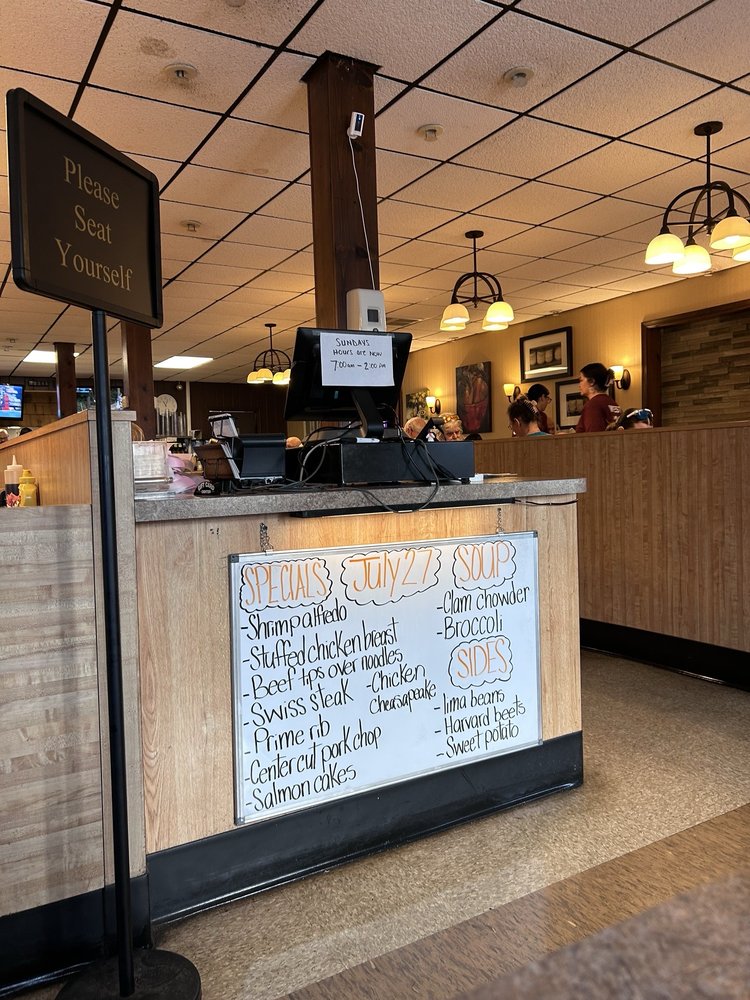 Please
Seat
Yourself
SUNDAYS
HOURS ARE NOW
7:00AM - 2:00PM
SPECIALS
July 27
SOUP
-Shrimp alfredo
-Stuffed chicken breast
-Beef tips over noodles
-Swiss steak
-Prime rib
-Center cut pork chop
-Salmon cakes
-Chicken
chearsapeake
-Clam chowder
-Broccoli
SIDES
-lima beans
-Harvard beets
-Sweet potato